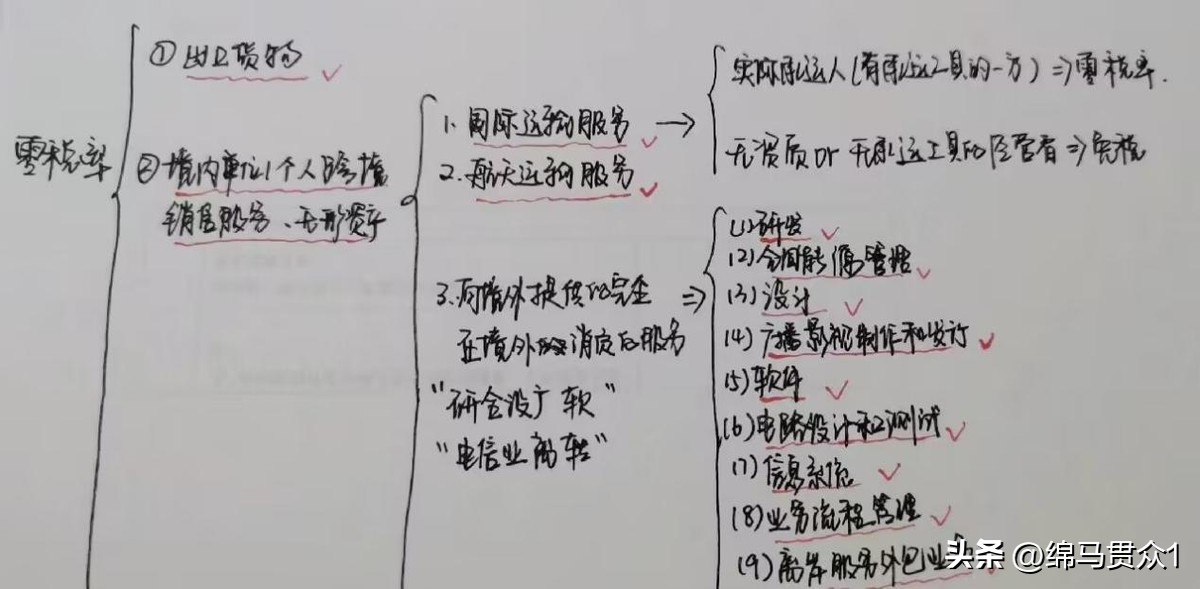 零税率
① 出口货物
② 境内单位/个人跨境
销售服务、无形资产
1. 国际运输服务
2. 航天运输服务
实际承运人(有承运工具的一方)⇒零税率.
无资质or无承运工具的经营者⇒免税
3. 向境外提供的完全
在境外消费的服务
"研合设广软"
"电信业离转"
(1)研发
(2)合同能源管理
(3)设计
(4)广播影视制作和发行
(5)软件
(6)电路设计和测试
(7)信息系统
(8)业务流程管理
(9)离岸服务外包业
头条 @绵马贯众1